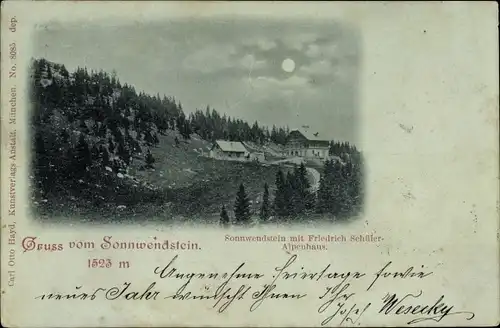 Carl Otto Hayd, Kunstverlags-Anstalt, München. No. 8085 dep.
Gruss vom Sonnwendstein.
1523 m
Sonnwendstein mit Friedrich Schüler-
Alpenhaus.
Angenehme Feiertage sowie
neues Jahr wünscht Ihnen Ihr Josef Wesecky